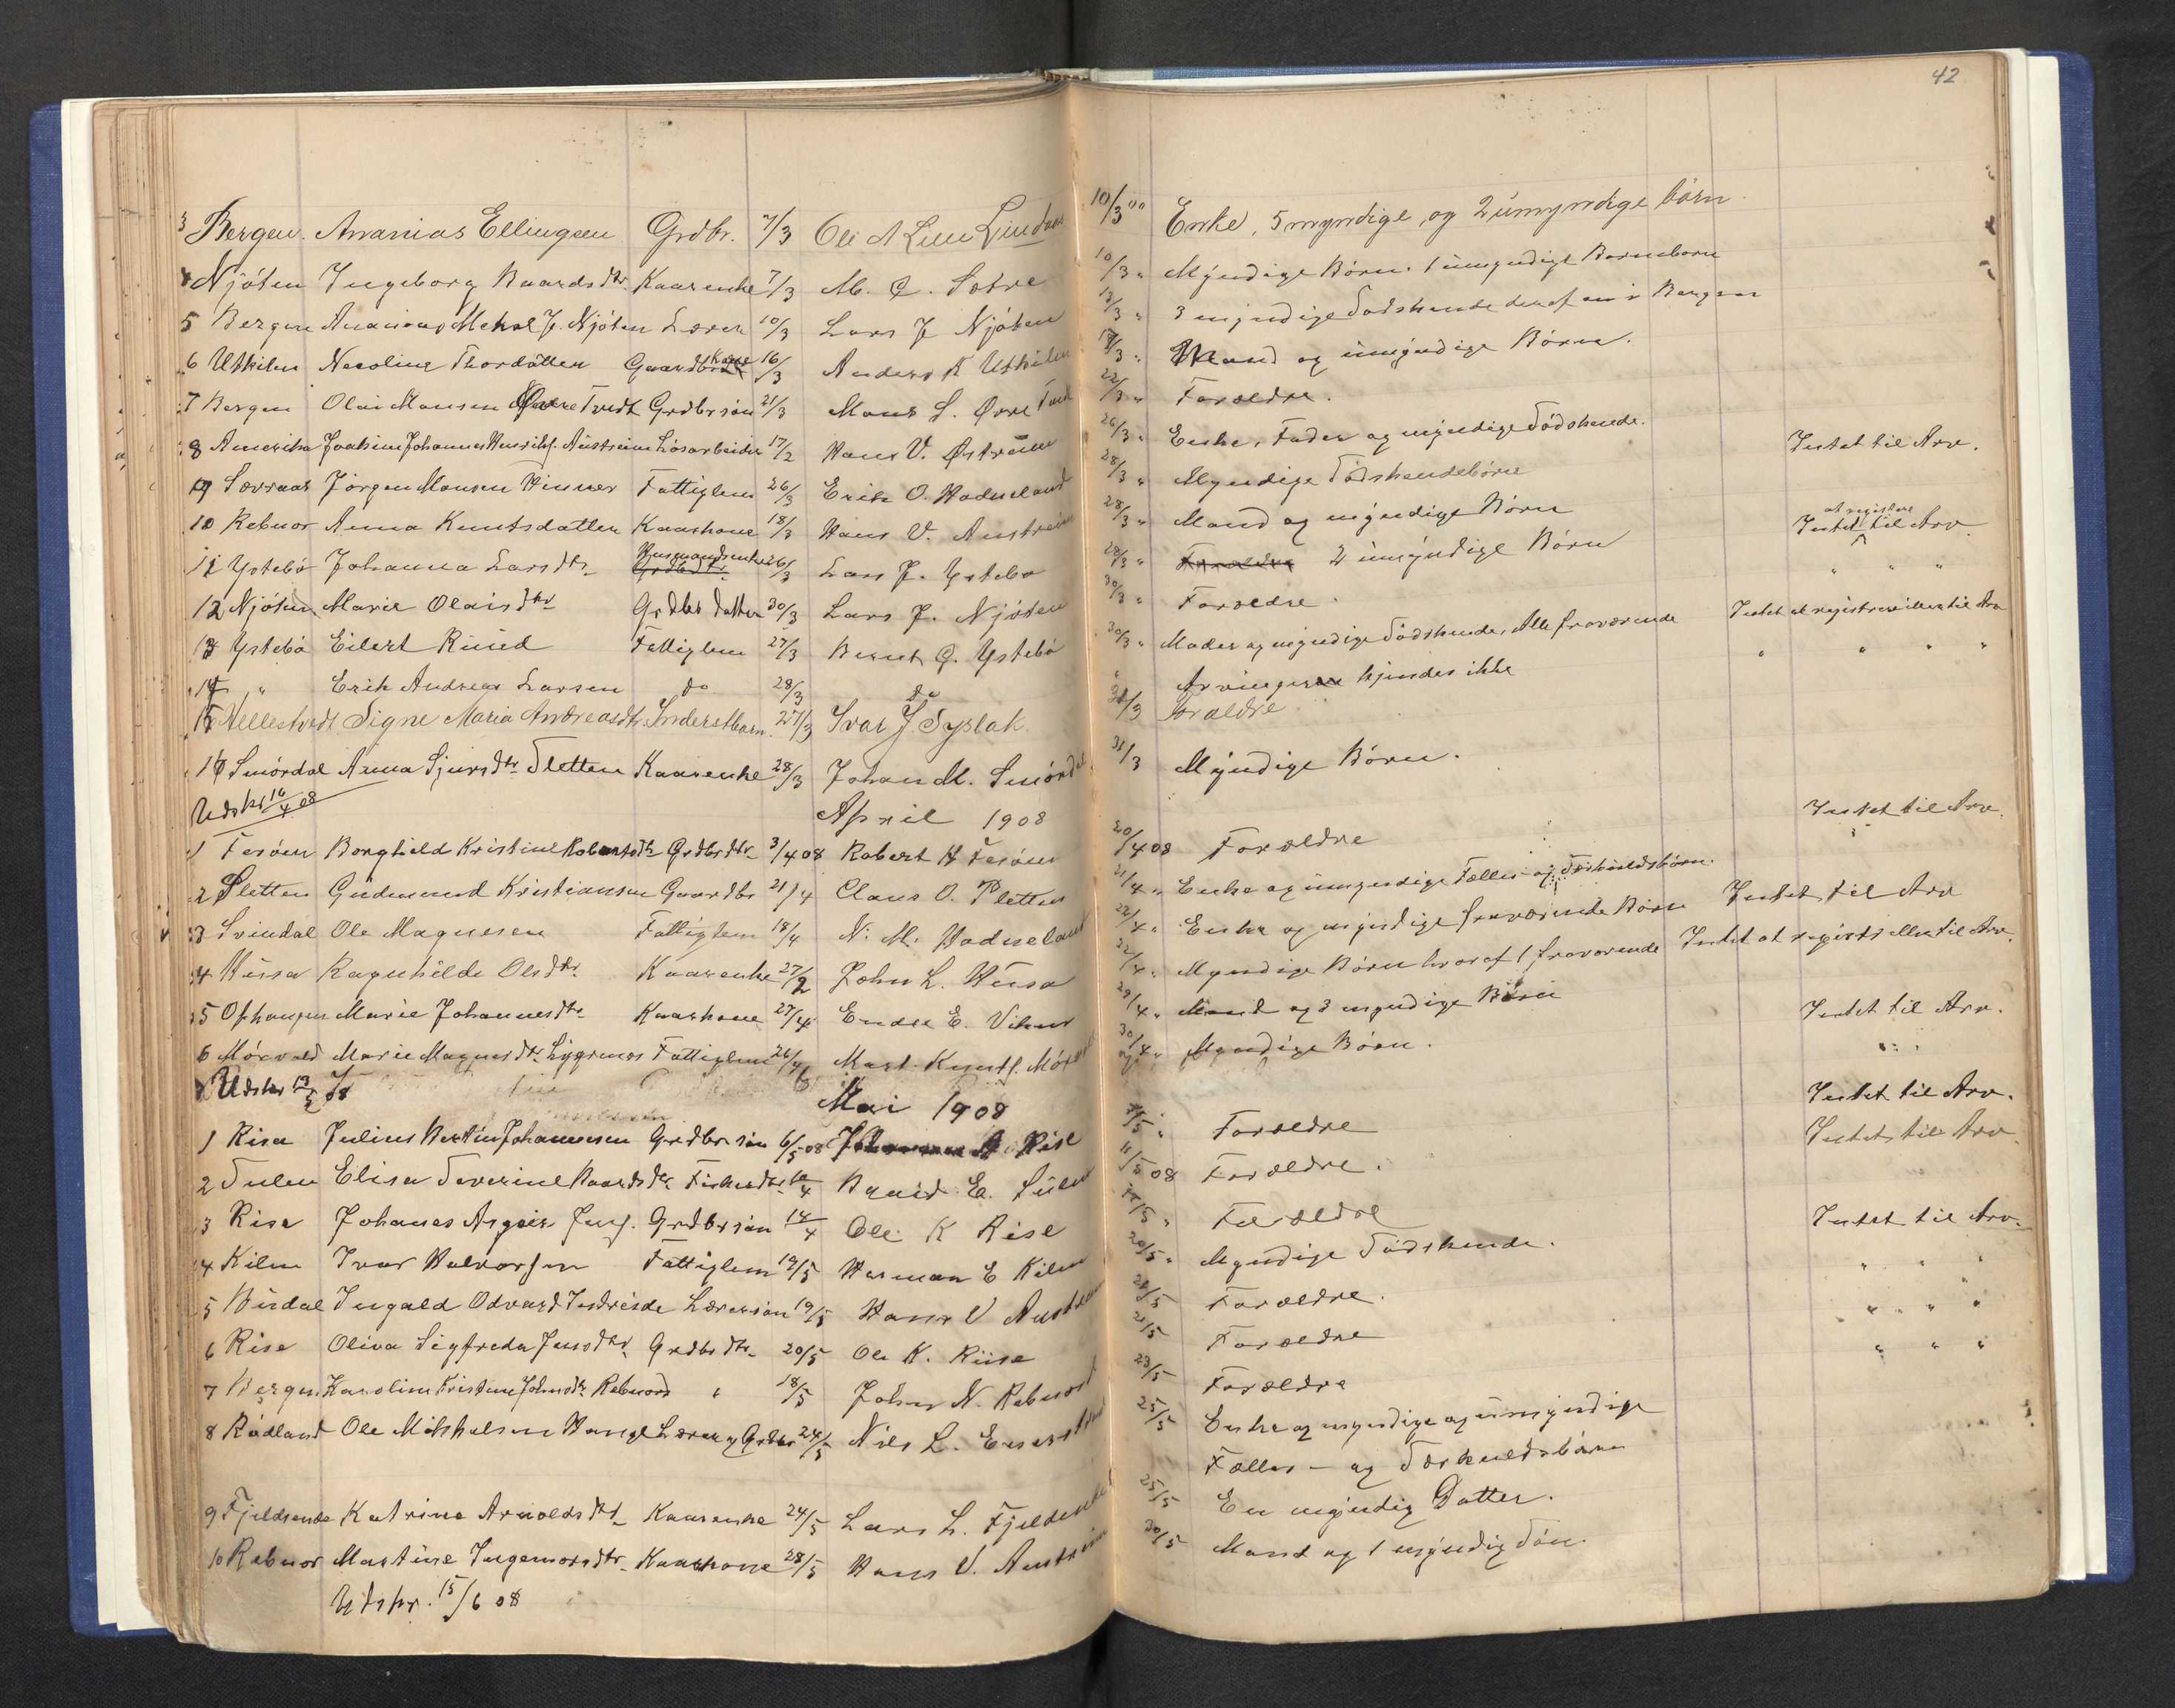 42
3 Bergen. Ananias Ellingsen Grdbr. 7/3 Ole A Lien Lindaas 10/3 Enke, 5 myndige, og 2 umyndige børn.
4 Njøten Ingeborg Baardsdtr. Kaarenke 7/3 M. C. Sætre 10/3 " Myndige Børn. 1 umyndige Barnebarn
5 Bergen Ananias J. Njøten Lærer 10/3 Lars J Njøten 13/3 " 3 myndige Sødskende deraf en i Bergen
6 Utkilen Necoline Thordatter Gaardbr Kone 16/3 Anders K Utkilen /3 " Mand og umyndige Børn.
7 Bergen Olai Monsen Øvre Tvedt Grdbrsøn 21/3 Mons S. Øvre Tvedt 22/3 " Forældre.
8 Amerika Joakim Johannes Henriks. Austreim Løsarbeider 17/2 Hans V. Østreim 26/3 " Enke, Fader og myndige Sødskende. Intet til Arv.
9 Sævraas Jørgen Monsen Hinner Fattiglem 26/3 Erik O. Hodneland 28/3 " Myndige Sødskendebørn
10 Rebnor Anna Knutsdatter Kaarkone 18/3 Hans V. Austreim 28/3 " Mand og myndige Børn Intet at registrere til Arv
11 Ystebø Johanna Larsdtr. Husmandsenke 26/3 Lars J. Ystebø 28/3 " Forældre 2 umyndige Børn " " "
12 Njøten Marie Olaisdtr Grdbr datter 30/3 Lars J. Njøten 30/3 " Forældre.
13 Ystebø Eilert Knud Fattiglem 27/3 Bernt G. Ystebø 30/3 " Moder og myndige Sødskende, Alle fraværende Intet at registrere eller til Arv
14 " Erik Andreas Larsen do 28/3 do " Arvinger kjendes ikke " " " "
15 Hellestvedt Signe Maria Andreasdtr. Inderstbarn. 27/3 Ivar J. Syslak 31/3 Foraldre
16 Smørdal Anna Sjursdtr Sletten Kaarenke 28/3 Johan M. Smørdal 31/3 Myndige Børn.
Udskr 16/4 08
April 1908
1 Fesøen Borghild Kristine Robertsdtr Grdbrdtr. 3/4 08 Robert H Fesøen 20/4 08 Forældre Intet til Arv.
2 Sletten Gudmund Kristiansen Gaardbr 21/4 Claus O. Pletten 21/4 " Enke og umyndige Fælles- og Særkuldsbørn.
3 Svindal Ole Magnesen Fattiglem 18/4 N. M. Hodneland 22/4 " Enke og myndige fraværende Børn Intet til Arv
4 Husa Ragnhilde Olsdtr. Kaarenke 27/2 John L. Husa 22/4 " Myndige Børn hvoraf 1 fraværende Intet at registr eller til Arv.
5 Ophaugen Marie Johannesdtr Kaarkone 27/4 Endre E. Viken 29/4 " Mand og 3 myndige Børn Intet til Arv.
6 Mørvold Marie Magnesdtr. Lygrenes Fattiglem 26/4 Mart. Knuts. Mørvold 30/4 " Myndige Børn. " "
Udskr 13/5 08
Mai 1908
1 Risa Julius Bertin Johannesen Grdbrsøn 6/5 08 Johannes A Rise 7/5 " Forældre Intet til Arv.
2 Sulen Elisa Severine Baardsdtr Fiskerdtr /4 Baard E. Sulen 11/5 08 Forældre. Intet til Arv.
3 Rise Johanes Argeir Jens. Grdbrsøn 14/4 Ole K Rise /5 " Forældre
4 Kilen Ivar Halvorsen Fattiglem 19/5 Herman E Kilen 20/5 " Myndige Sødskende. Intet til Arv.
5 Birdal Ingald Odvard Indreide Lærersøn 19/5 Hans V Austreim 20/5 Forældre. " " "
6 Rise Oliva Sigfreda Jensdtr. Grdbrdtr. 20/5 Ole K. Riise 21/5 Forældre " " "
7 Bergen Karoline Kristine Johnsdtr Rebnord " 18/5 John N. Rebnord 23/5 Forældre " " "
8 Rødland Ole Mikkelsen Hauge Lærer og Grdbr 24/5 Nils L. 25/5 Enke og myndige og umyndige
Fælles- og Særkuldsbørn
9 Fjeldsende Katrine Arnoldsdtr. Kaarenke 24/5 Lars L. Fjeldsende 25/5 En myndig Datter.
10 Rebnor Martine Ingemorsdtr. Kaarkone 28/5 Hans V. Austreim 30/5 Mand og 1 myndig Søn.
Udskr. 15/6 08